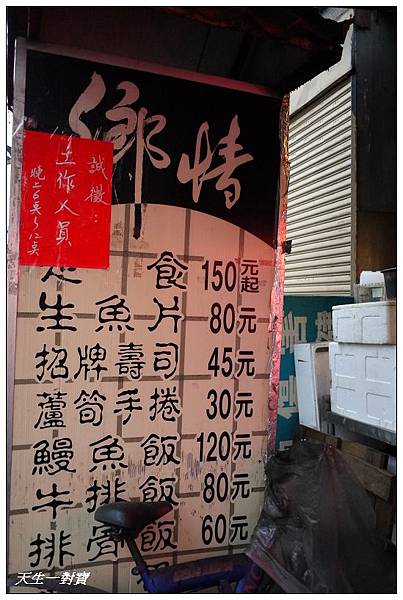 鄉情
誠徵:
工作人員
晚上6点~12点
定食 150元起
生魚片 80元
招牌壽司 45元
蘆筍手捲 30元
鰻魚飯 120元
牛排飯 80元
排骨飯 60元
天生一對寶